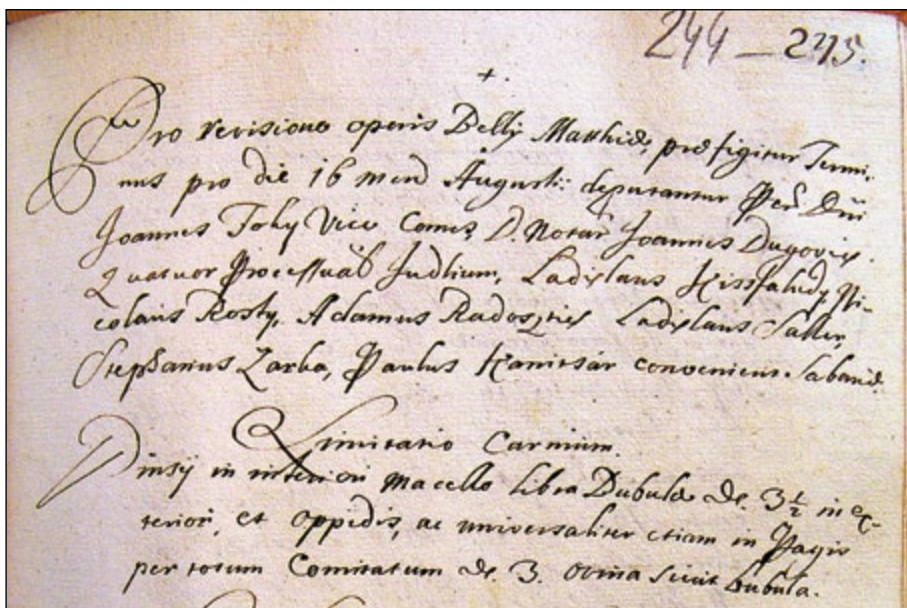 244 – 245.
+.
Pro revisione operis Belly Matthiæ, præfigitur Termi-
nus pro die 16 mens Augusti: deputantur Per Dni
Joannes Toky Vice Comes, D. Notar Joannes Dugovis.
Quatuor Processuâl Judlium, Ladislaus Kissfaludy, Ni-
colaus Rosty, Adamus Radosztics Ladislaus Saller,
Stephanus Zarka, Paulus Kanitsár convenient Sabariæ.
Limitatio Carnium.
Ginsy in interiori macello libra Bubulæ Dr. 3½ in ex-
teriori, et oppidis, ac universaliter etiam in Pagis
per totum Comitatum Dr. 3. ovina sicut bubula.